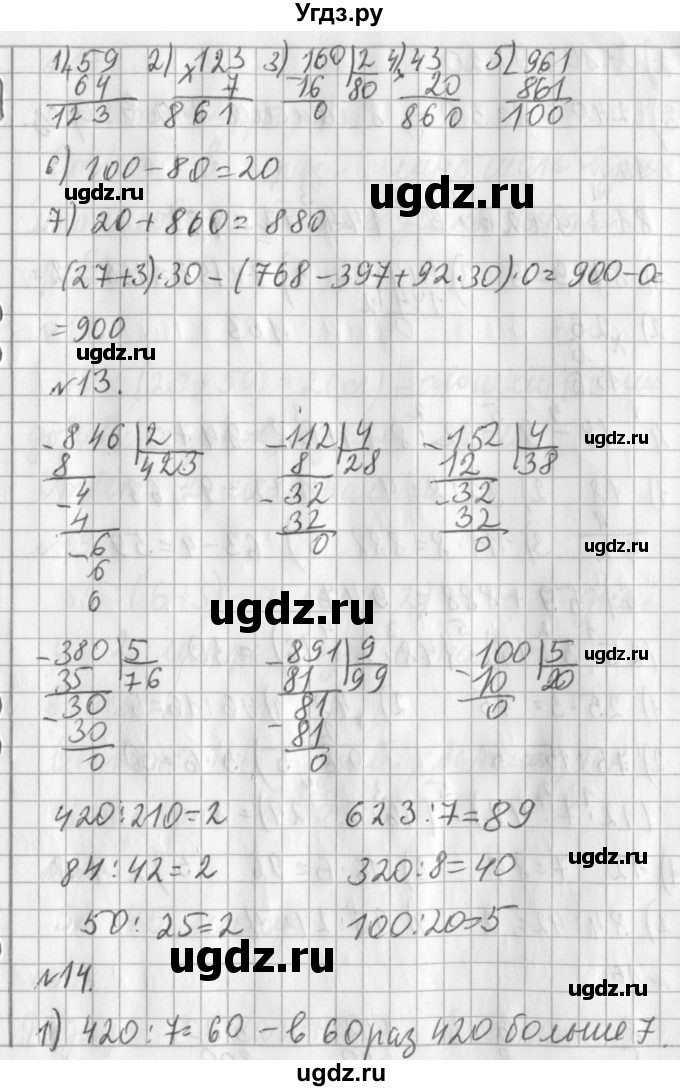 Угдз.ру
1) 59 2) 123 3) 160 | 2 4) 43 5) 961
+ 64 × 7 - 16 | 80 × 20 - 861
123 861 0 860 100
6) 100 - 80 = 20
ugdz.ru ugdz.ru
7) 20 + 860 = 880
(27+3)·30 - (768 - 397 + 92·30)·0 = 900 - 0 =
= 900
ugdz.ru
№13.
- 846 | 2 - 112 | 4 - 152 | 4 ugdz.ru
8 | 423 8 | 28 12 | 38
- 4 - 32 - 32
4 32 32
- 6 0 0 ugdz.ru
6
6
ugdz.ru
- 380 | 5 - 891 | 9 - 100 | 5 ugdz.ru
35 | 76 81 | 99 10 | 20
- 30 - 81 0
30 81
0 0
420:210=2 623:7=89
84:42=2 320:8=40 ugdz.ru
50:25=2 100:20=5
ugdz.ru
№14. ugdz.ru
1) 420:7=60 - в 60 раз 420 больше 7.
ugdz.ru